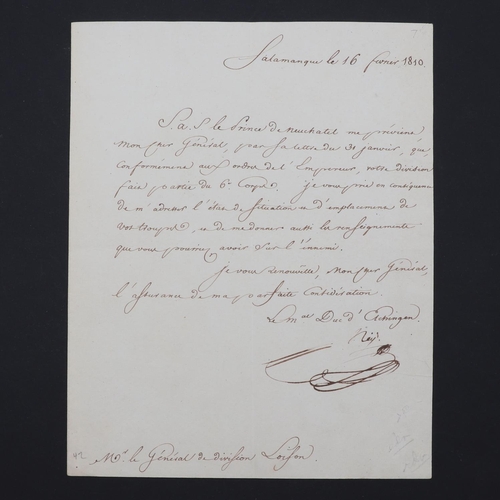 Salamanque le 16 fevrier 1810.
S. a. S. le Prince de Neuchatel me previent,
Mon cher Général, par sa lettre du 31 janvier, que,
conformément aux ordres de l'Empereur, votre division
fait partie du 6e Corps. je vous prie en conséquence
de m'adresser l'état de situation et d'emplacement de
vos troupes, et de me donner aussi les renseignements
que vous pourriez avoir sur l'ennemi.
je vous renouvelle, Mon cher Général,
l'assurance de ma parfaite considération.
Le Mal Duc d'Elchingen
Ney
Mr. le Général de division Loison.